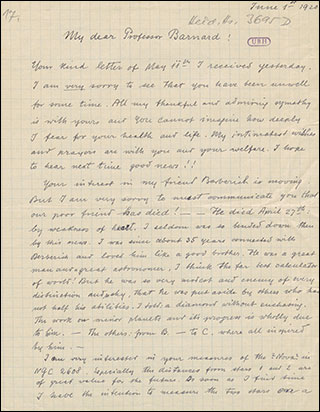 17.
June 1st 192
Decd. Dr. 3695 D
My dear Professor Barnard!
Your kind letter of May 11th I received yesterday.
I am very sorry to see that you have been unwell
for some time. All my thankful and admiring sympathy
is with yours and You cannot imagine how deeply
I fear for your health and life. My intimatest wishes
and prayers are with you and your welfare. I hope
to hear next time good news!!
Your interest in my friend Berberich is moving
But I am very sorry to must communicate you that
our poor friend has died! — He died April 27th:
by weakness of heart. I seldom was so bended down then
by this news. I was since about 35 years connected with
Berberich and loved him like a good brother. He was a great
man and great astronomer; I think the best calculator
of world! But he was very modest and enemy of every
distinction and pushy, that he was put aside by others who had
not half his abilities. I lost a diamond without enchasing.
The work on minor planets and its progress is wholly due
to him. — The others: from B. — to C. where all inspired
by him. —
I am very interested in your measures of the "Nova" in
NGC 2608. Especially the distances from stars 1 and 2 are
of great value for the future. As soon as I find time
I have the intention to measure the two stars over a